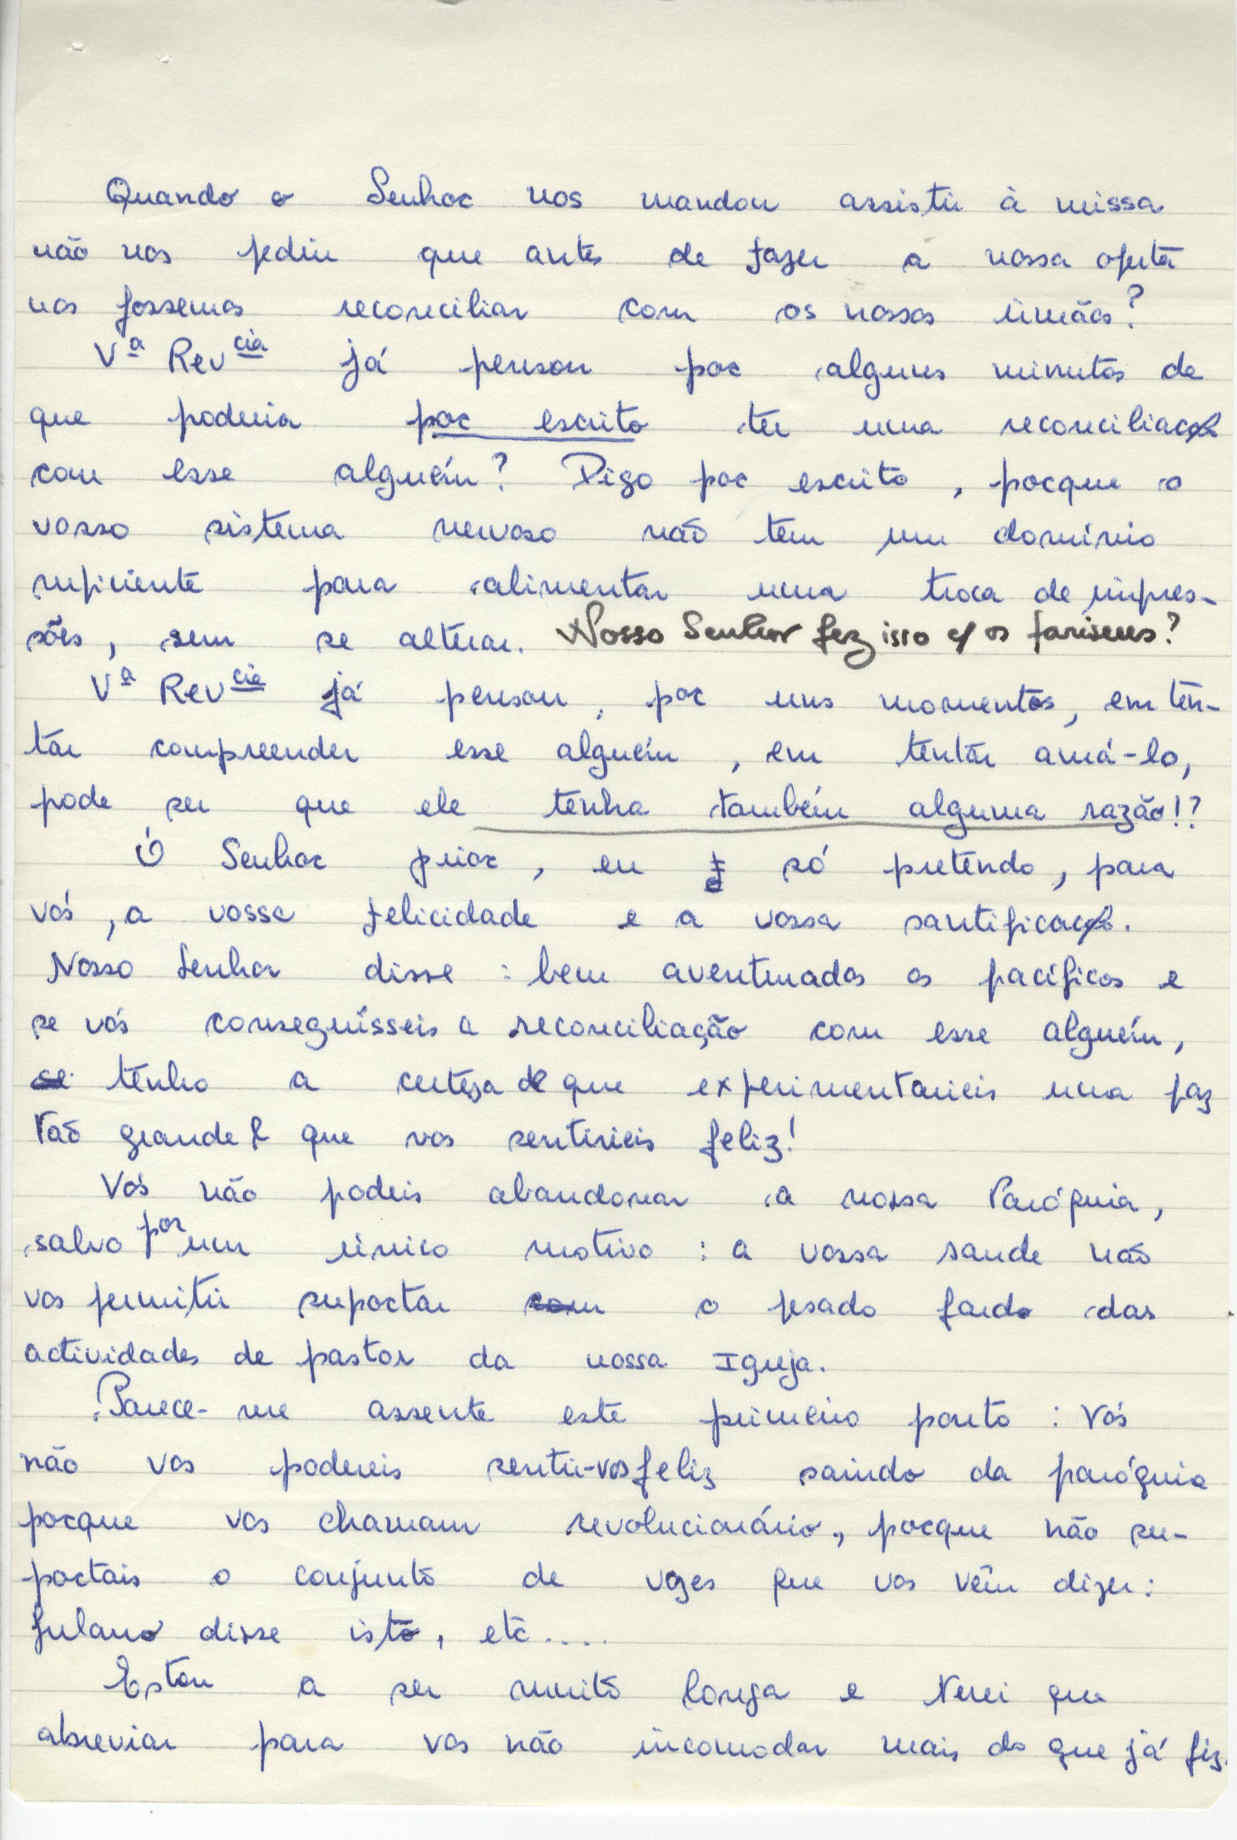 Quando o Senhor nos mandou assistir à missa
não nos pediu que antes de fazer a nossa oferta
nos fossemos reconciliar com os nossos irmãos?
Vª Revcia já pensou por alguns minutos de
que poderia por escrito ter uma reconciliação
com esse alguém? Digo por escrito, porque o
vosso sistema nervoso não tem um domínio
suficiente para alimentar uma troca de impres-
sões, sem se alterar. Nosso Senhor fez isso c/ os fariseus?
Vª Revcia já pensou, por uns momentos, em ten-
tar compreender esse alguém, em tentar amá-lo,
pode ser que ele tenha também alguma razão!?
Ó Senhor prior, eu só pretendo, para
vós, a vossa felicidade e a vossa santificação.
Nosso Senhor disse: bem aventurados os pacíficos e
se vós conseguísseis a reconciliação com esse alguém,
se tenho a certeza de que experimentarieis uma paz
tão grande que vos sentirieis feliz!
Vós não podeis abandonar a nossa Paróquia,
salvo por um único motivo: a vossa saude não
vos permitir suportar com o pesado fardo das
actividades de pastor da nossa Igreja.
Parece-me assente este primeiro ponto: Vós
não vos podereis sentir-vos feliz saindo da paróquia
porque vos chamam revolucionário, porque não su-
portais o conjunto de vozes que vos vêm dizer:
fulano disse isto, etc....
Estou a ser muito longa e terei que
abreviar para vos não incomodar mais do que já fiz.